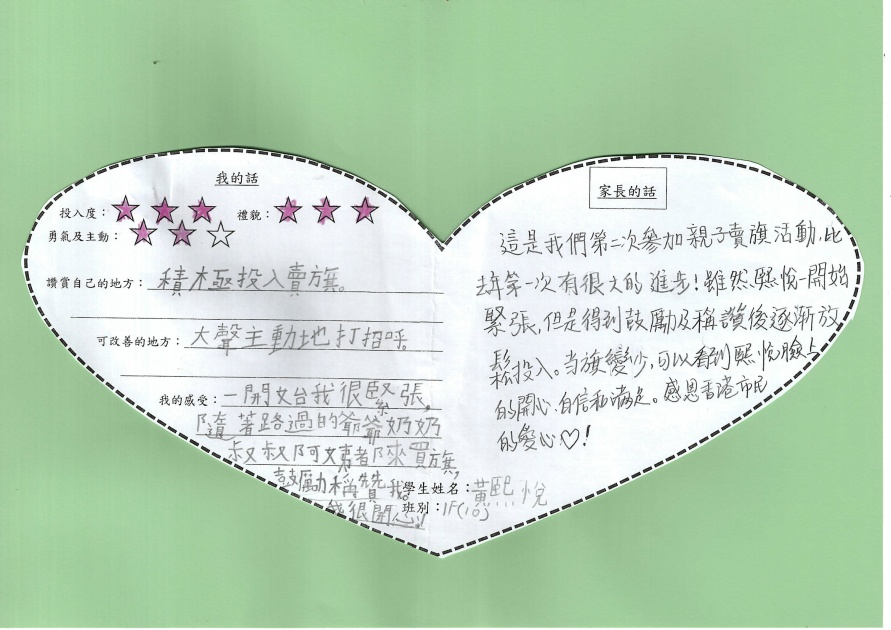 我的話
投入度：★★★ 禮貌：★★★
勇氣及主動：★★☆
讚賞自己的地方：積極投入賣旗。
可改善的地方：大聲主動地打招呼
我的感受：一開始我很緊張，
隨著路過的爺爺奶奶
叔叔阿姨都來買旗，
鼓勵稱贊我。
我很開心！
學生姓名：黃熙悅
班別：1F(10)
家長的話
這是我們第二次參加親子賣旗活動，比
去年第一次有很大的進步！雖然熙悅一開始
緊張，但是得到鼓勵及稱讚後逐漸放
鬆投入。当旗變少，可以看到熙悅臉上
的開心、自信和滿足。感恩香港市民
的愛心♡！